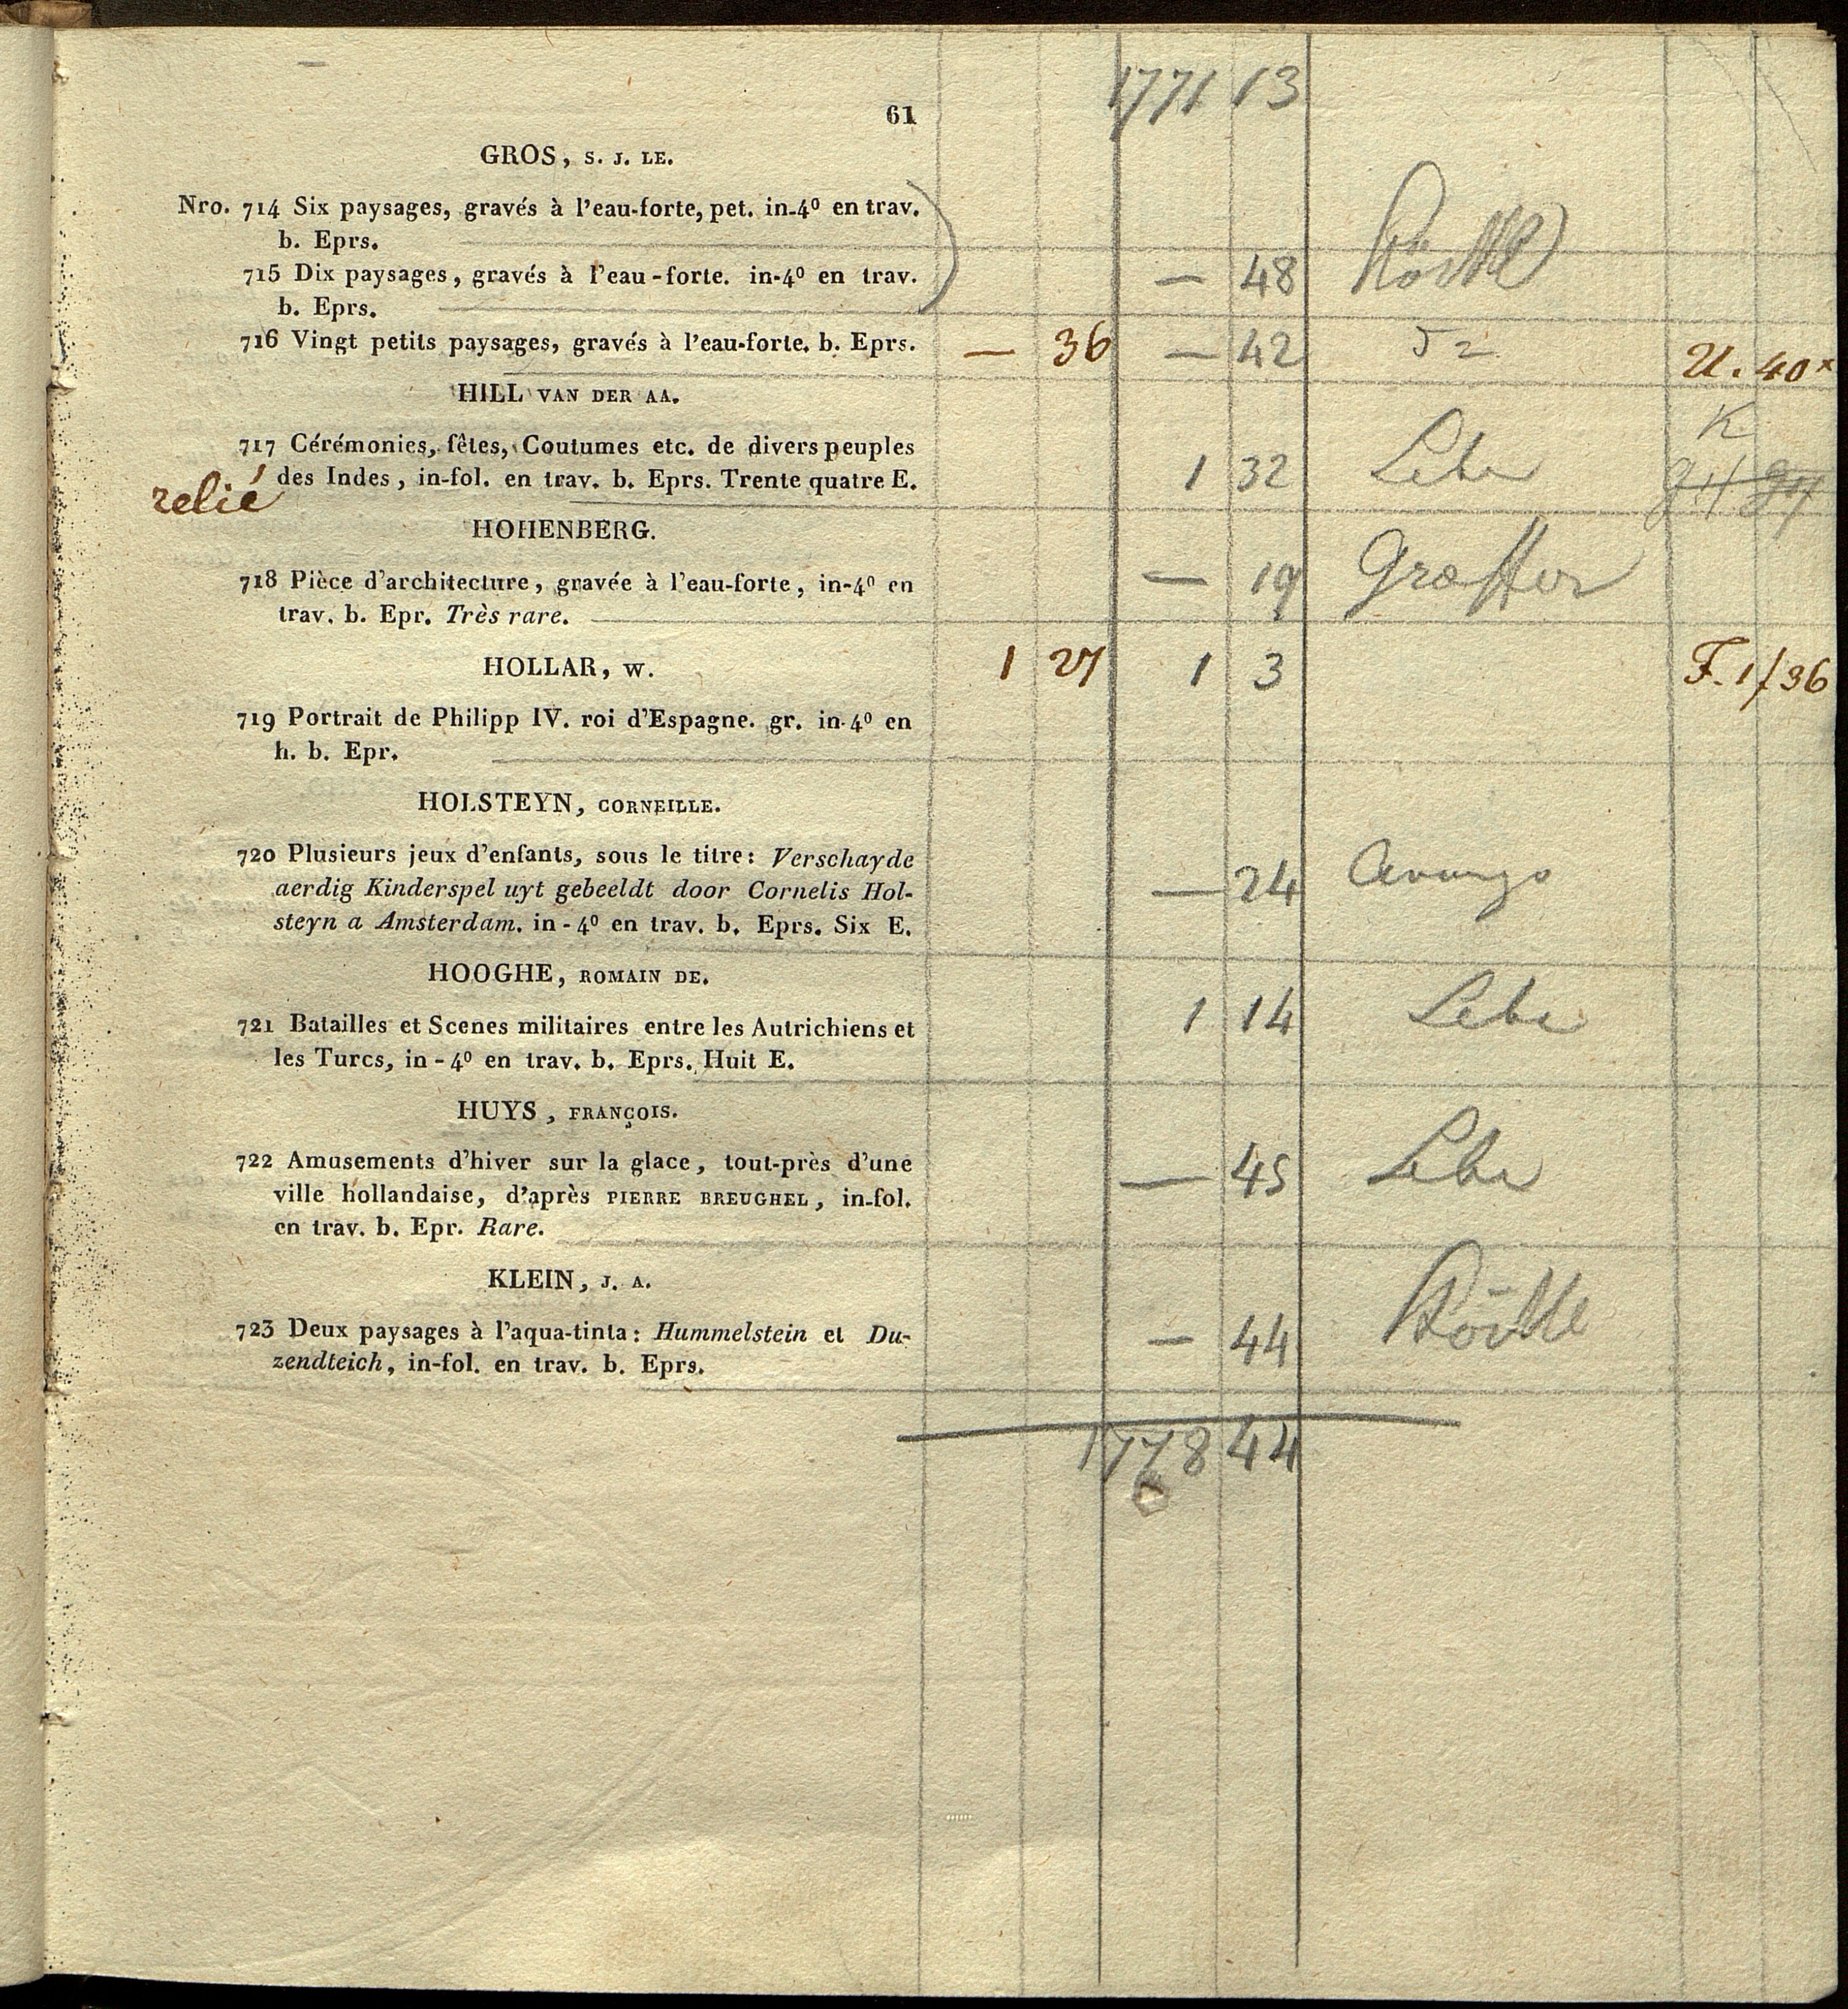 1771 13
61
GROS, S. J. LE.
Nro. 714 Six paysages, gravés à l'eau-forte, pet. in-4º en trav.
b. Eprs.
715 Dix paysages, gravés à l'eau-forte. in-4º en trav.
b. Eprs.
— 48
716 Vingt petits paysages, gravés à l'eau-forte. b. Eprs. — 36 — 42 U. 40x
HILL VAN DER AA.
K
717 Cérémonies, fêtes, Coutumes etc. de divers peuples
des Indes, in-fol. en trav. b. Eprs. Trente quatre E. 1 32
relié
HOHENBERG.
718 Pièce d'architecture, gravée à l'eau-forte, in-4º en — 19 Græffer
trav. b. Epr. Très rare.
HOLLAR, W. 1 27 1 3 F. 1/36
719 Portrait de Philipp IV. roi d'Espagne. gr. in-4º en
h. b. Epr.
HOLSTEYN, CORNEILLE.
720 Plusieurs jeux d'enfants, sous le titre: Verschayde
aerdig Kinderspel uyt gebeeldt door Cornelis Hol- — 24
steyn a Amsterdam. in-4º en trav. b. Eprs. Six E.
HOOGHE, ROMAIN DE.
721 Batailles et Scenes militaires entre les Autrichiens et 1 14
les Turcs, in-4º en trav. b. Eprs. Huit E.
HUYS, FRANÇOIS.
722 Amusements d'hiver sur la glace, tout-près d'une — 45
ville hollandaise, d'après PIERRE BREUGHEL, in-fol.
en trav. b. Epr. Rare.
KLEIN, J. A.
723 Deux paysages à l'aqua-tinta: Hummelstein et Du- — 44
zendteich, in-fol. en trav. b. Eprs.
1778 44